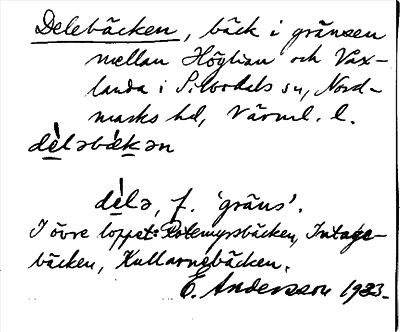 Delebäcken, bäck i gränsen
mellan Höglian och Vax-
landa i Silbodals sn, Nord-
marks hd, Värml. l.
de̍ləbäk̍ən
de̍lə, f. 'gräns'.
I övre loppet: Rotemyrsbäcken, Intage-
bäcken, Kullarnebäcken.
E. Andersson 1933.